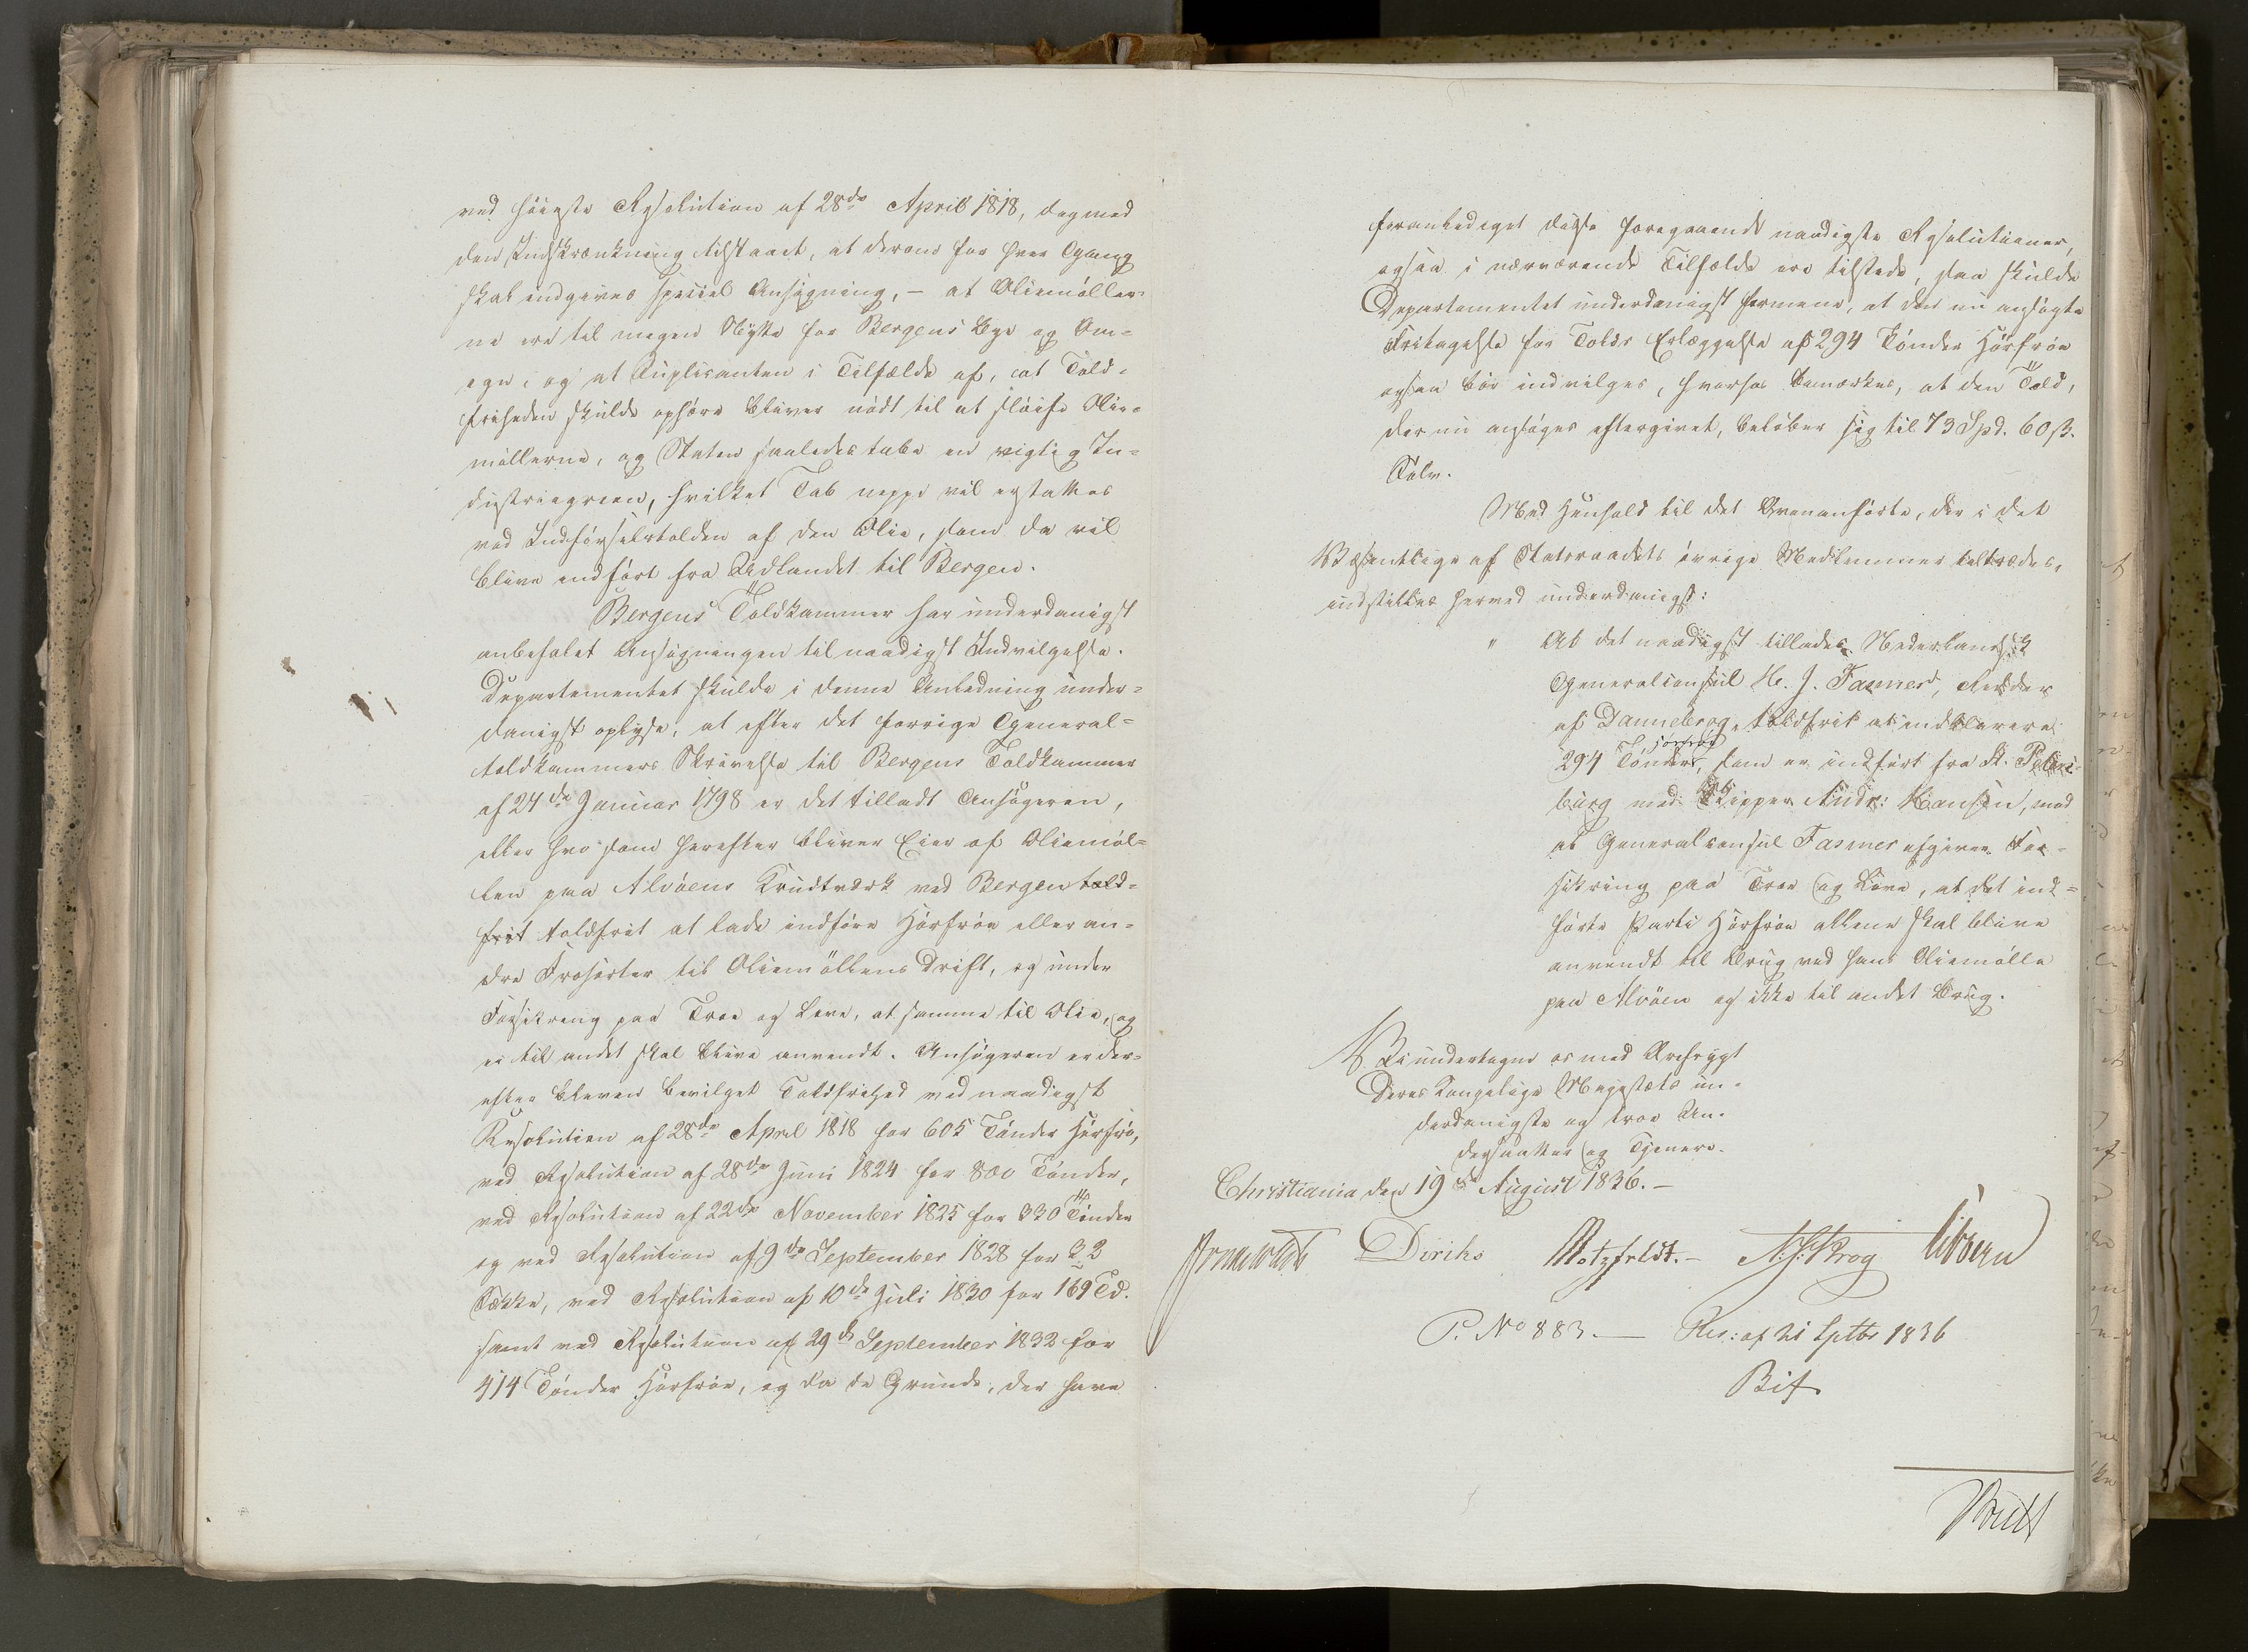 ved høieste Resolution af 28de April 1818, dog med
den Indskrænkning tilstaaet, at derom for hver Gang
skal indgives speciel Ansøgning, – at Oliemøller-
ne ere til megen Nytte for Bergens Bye og Om-
egn, og at Suplicanten i Tilfælde af, at Told-
friheden skulde ophøre bliver nødt til at sløife Olie-
møllerne, og Staten saaledes tabe en vigtig In-
dustriegreen, hvilket Tab neppe vil erstattes
ved Indførselstolden af den Olie, som da vil
blive indført fra Udlandet til Bergen.
Bergens Toldkammer har underdanigst
anbefalet Ansøgningen til naadigst Indvilgelse.
Departementet skulde i denne Anledning under-
danigst oplyse, at efter det forrige General-
toldkammers Skrivelse til Bergens Toldkammer
af 24de Januar 1798 er det tilladt Ansøgeren,
eller hvo som herefter bliver Eier af Oliemøl-
len paa Alvøens Krudtværk ved Bergen told-
frit toldfrit at lade indføre Hørfrøe eller an-
dre Frøsorter til Oliemøllens Drift, og under
Forsikring paa Troe og Love, at samme til Olie, og
ei til andet skal blive anvendt. Ansøgeren er der-
efter bleven bevilget Toldfrihed ved naadigst
Resolution af 28de April 1818 for 605 Tønder Hørfrø,
ved Resolution af 28de Juni 1824 for 800 Tønder,
ved Resolution af 22de November 1825 for 330 Tønder
og ved Resolution af 9de September 1828 for 32
Sække, ved Resolution af 10de Juli 1830 for 169 Td.
samt ved Resolution af 29d September 1832 for
414 Tønder Hørfrøe, og da de Grunde, der have
foranlediget disse foregaaende naadigste Resolutioner,
ogsaa i nærværende Tilfælde ere tilstede, saa skulde
Departementet underdanigst formene, at den nu ansøgte
Fritagelse for Tolds Erlæggelse af 294 Tønder Hørfrøe
ogsaa bør indvilges, hvorhos bemærkes, at den Told,
der nu ansøges eftergivet, beløber sig til 73 Spd. 60 ß.
Sølv.
Med Henhold til det Ovenanførte, der i det
Væsentlige af Statsraadets øvrige Medlemmer tiltrædes,
indstilles herved underdanigst:
" At det naadigst tillades Nederlandsk
Generalconsul H. J. Fasmer, Ridder
af Dannebrog, toldfrit at indklarere
294 Tønder Hørfrøe, som er indført fra St. Peters-
burg med Skipper Andr: Hansen, mod
at Generalconsul Fasmer afgiver For-
sikring paa Troe og Love, at det ind-
førte Parti Hørfrøe allene skal blive
anvendt til Brug ved hans Oliemølle
paa Alvøen og ikke til andet Brug.
Vi undertegne os med Ærefrygt
Deres Kongelige Majestæts un-
derdanigste og troe Un-
dersaatter og Tjenere.
Christiania den 19de August 1836. –
Diriks Motzfeldt. – N: J: Krog Sibbern
P. No 883. — Res: af 21 Septbr 1836